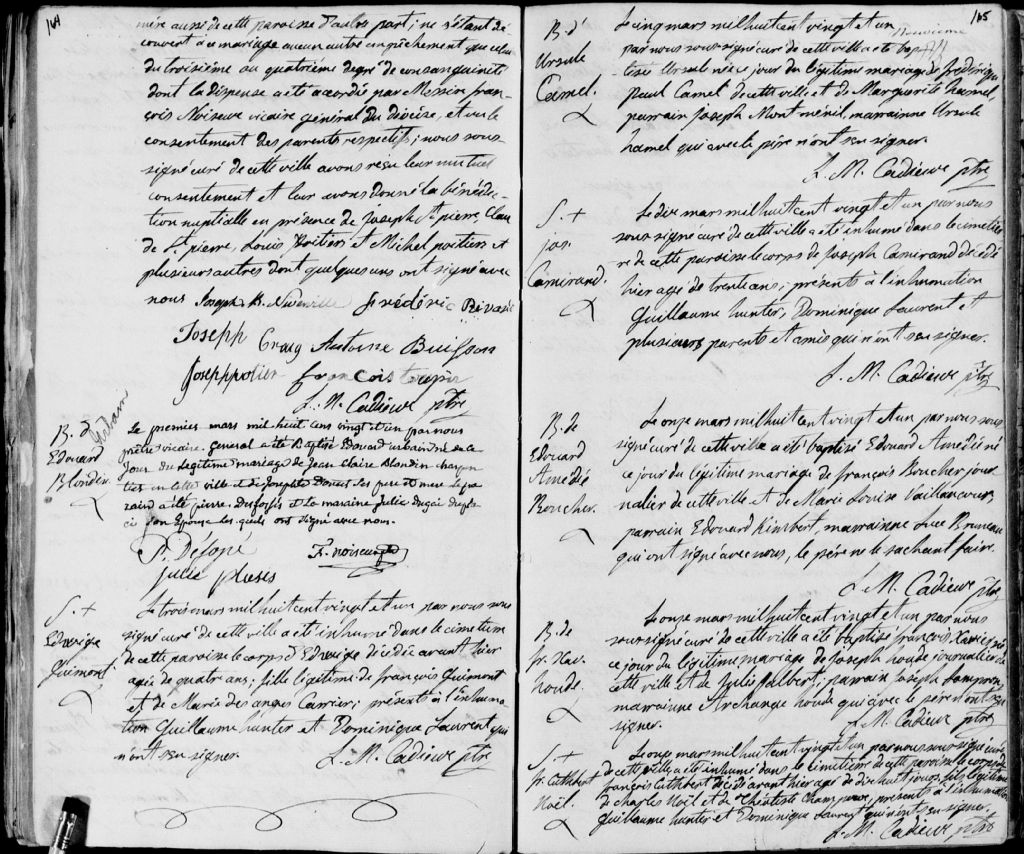 164
mère aussi de cette paroisse d'autre part; ne s'étant dé
couvert au mariage aucun autre empêchement que celui
du troisième au quatrième degré de consanguinité
dont la dispense a été accordé par Messire fran-
çois Noiseux vicaire général du diocèse, et vu le
consentement des parents respectifs; nous sous-
signé curé de cette ville avons reçu leur mutuel
consentement et leur avons donné la bénédic-
tion nuptialle en présence de Joseph St pierre, Clau
de St pierre, Louis Poitiers et Michel poitiers et
plusieurs autres dont quelques uns ont signé avec
nous Joseph frédéric
Joseph Craig Antoine Buisson
françois
L. M. Cadieux ptre
B. d'
Edouard
Urbain
Blondin
Le premier mars mil-huit cens vingt et un par nous
prêtre vicaire-General a été Baptisé Edouard urbain né ce
Jour du Legitime mariage de Jean Claire Blondin charpen
tier en cette ville et de Josephte ses pere et mere le pa
rain a été pierre Desfossés et la maraine Julie
son Epouse les quels ont signé avec nous.
P. Désfosé F. noiseux
julie plessis
S. +
Edwige
Guimont
Le trois mars mil huit cent vingt et un par nous sous
signé curé de cette ville a été inhumé dans le cimetière
de cette paroisse le corps d'Edwige décédée avant hier
agée de quatre ans; fille légitime de françois Guimont
et de Marie des anges Carrier; présents à l'inhuma-
tion Guillaume hunter et Dominique Laurent qui
n'ont su signer. L. M. Cadieux ptre
165
B. d'
Ursule
Camel.
Le cinq mars mil huit cent vingt et un
par nous sous signé curé de cette ville a été bap-
tisée Ursule née ce jour du légitime mariage de fréderique
paul Camel de cette ville et de Marguerite hamel,
parrain Joseph Mont ménil, marrainne Ursule
hamel qui avec le père n'ont su signer.
L. M. Cadieux ptre
S. +
jos.
Camirand.
Le dix mars mil huit cent vingt et un par nous
sous signé curé de cette ville a été inhumé dans le cimetiè
re de cette paroisse le corps de Joseph Camirand décédé
hier agé de trente ans; présents à l'inhumation
Guillaume hunter, Dominique Laurent et
plusieurs parents et amis qui n'ont su signer.
L. M. Cadieux ptre
B. de
Edouard
Amédé
Boucher.
Le onze mars mil huit cent vingt et un par nous sous
signé curé de cette ville a été baptisé Edouard Amédé né
ce jour du légitime mariage de françois Boucher jour
nalier de cette ville et de Marie Louise Vaillancour,
parrain Edouard himbert, marrainne Luce Bruneau
qui ont signé avec nous, le père ne le sachant faire.
L. M. Cadieux ptre
B. de
fr. Xav.
houde.
Le onze mars mil huit cent vingt et un par nous
sous signé curé de cette ville a été baptisé françois Xavier né
ce jour du légitime mariage de Joseph houde journalier de
cette ville et de Julie Jalbert; parrain Joseph Lampron,
marrainne Archange houde qui avec le père n'ont su
signer. L. M. Cadieux ptre
S. +
fr. Cuthbert
Noël.
Le onze mars mil huit cent vingt et un par nous sous signé curé
de cette ville a été inhumé dans le cimetière de cette paroisse le corps de
françois Cuthbert décédé avant hier agé de dix huit jours fils légitime
de charles Noël et de Théotiste Champoux, présents à l'inhumation
Guillaume hunter et Dominique Laurent qui n'ont su signer.
L. M. Cadieux ptre